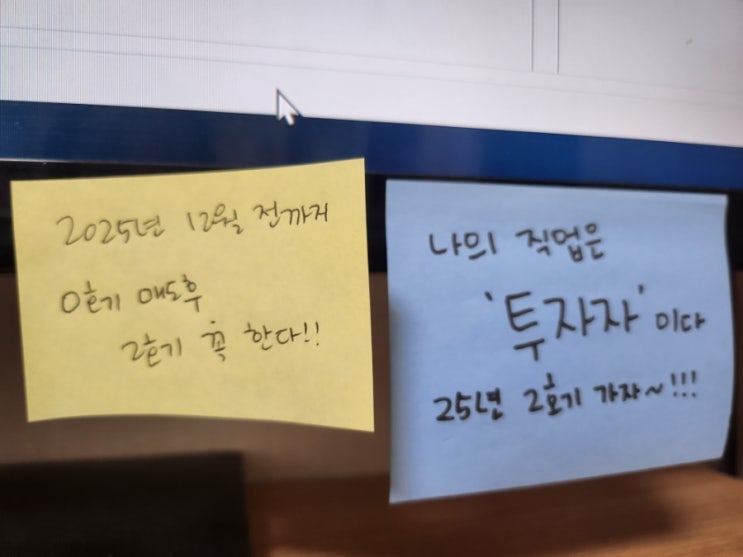 2025년 12월 전까지
0호기 매도후
2호기 꼭 한다!!
나의 직업은
'투자자'이다
25년 2호기 가자~!!!